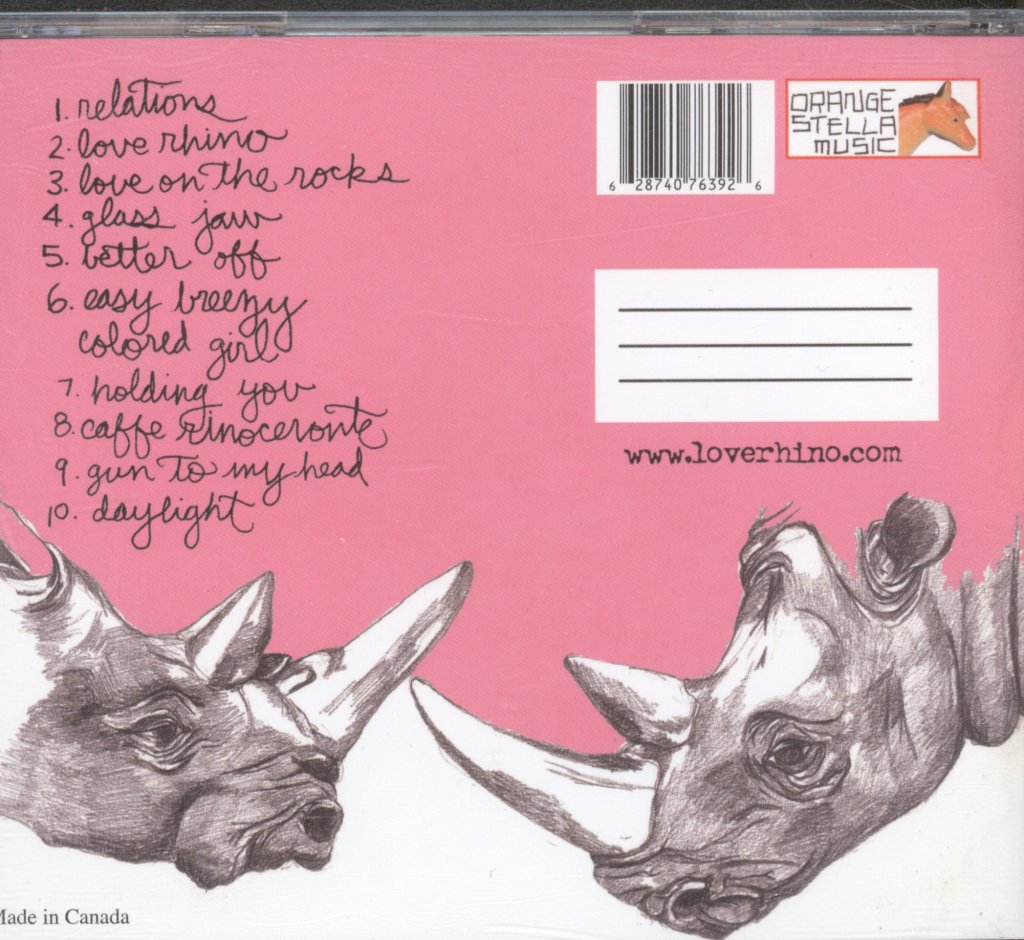 1. relations
2. love rhino
3. love on the rocks
4. glass jaw
5. better off
6. easy breezy
colored girl
7. holding you
8. caffe rinoceronte
9. gun to my head
10. daylight
6 28740 76392 6
ORANGE
STELLA
MUSIC
www.loverhino.com
Made in Canada